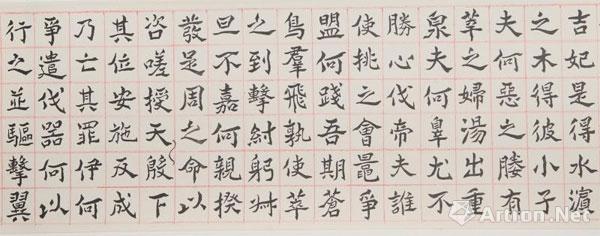 吉妃是得水濵
之木得彼小子
夫何惡之媵有
莘之婦湯出重
泉夫何辠尤不
勝心伐帝夫誰
使挑之會鼂爭
盟何踐吾期蒼
鳥羣飛孰使萃
之到擊紂躬叔
旦不嘉何親揆
發足周之命以
咨嗟授天殷下
其位安施反成
乃亡其罪伊何
爭遣伐器何以
行之並驅擊翼
Artron.Net